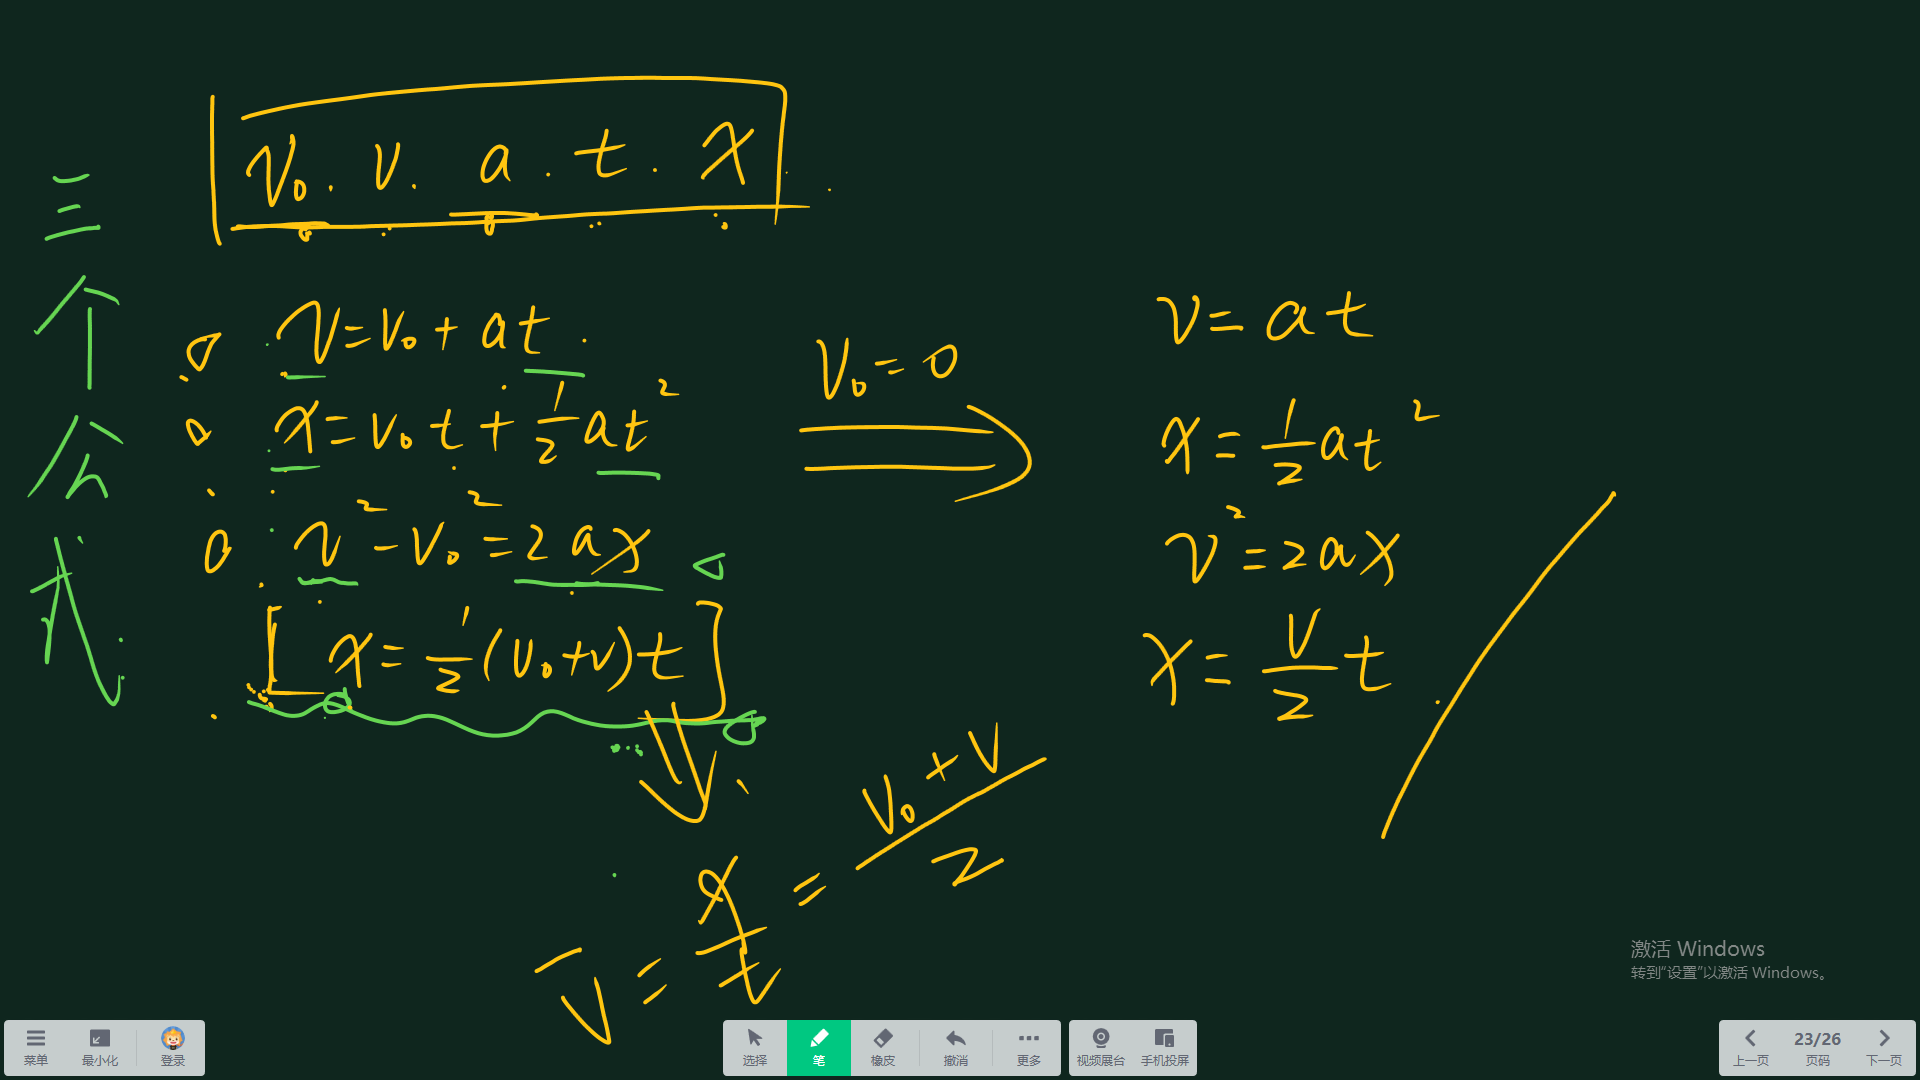 三个公式
v₀. v. a. t. x
v=v₀+at.
x=v₀t+½at²
v²-v₀²=2ax
[x=½(v₀+v)t]
v̄=x/t=(v₀+v)/2
v₀=0
v=at
x=½at²
v²=2ax
x=v/2 t
激活 Windows
转到“设置”以激活 Windows。
菜单 最小化 登录
选择 笔 橡皮 撤消 更多
视频展台 手机投屏
上一页 23/26 页码 下一页